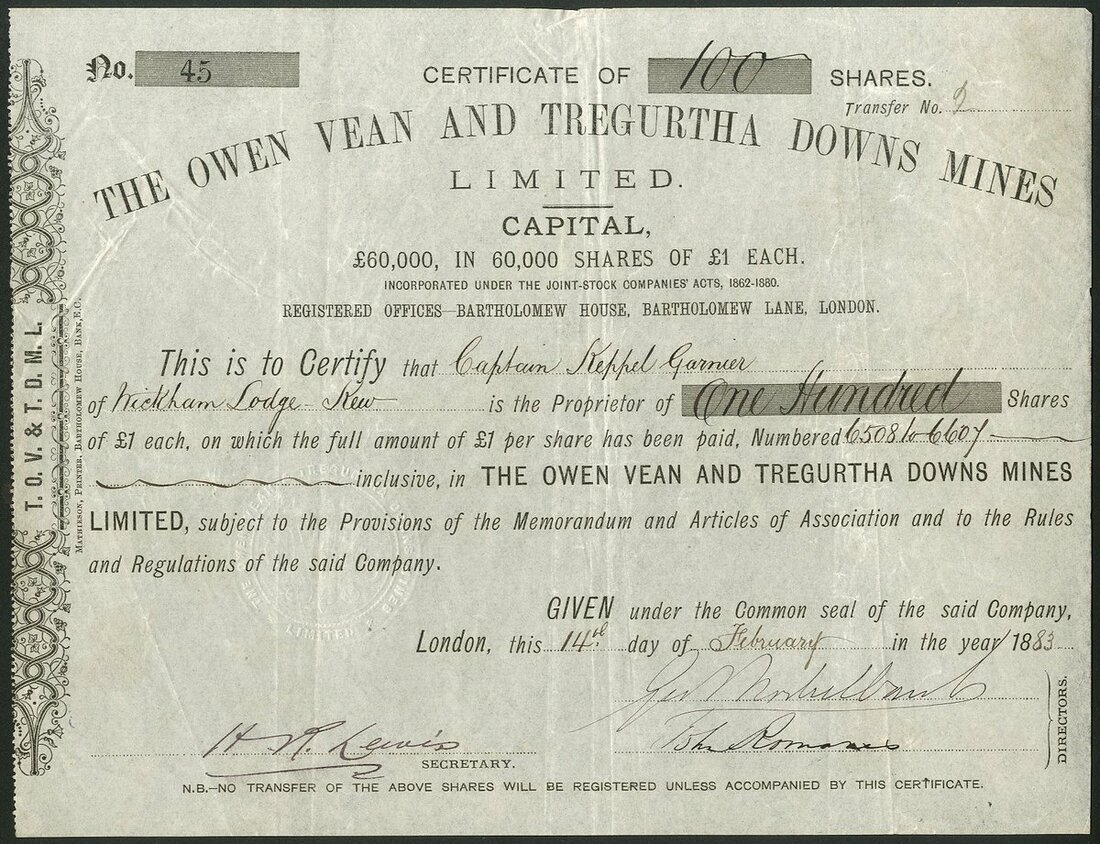 No. 45
CERTIFICATE OF 100 SHARES.
Transfer No.
THE OWEN VEAN AND TREGURTHA DOWNS MINES
LIMITED.
CAPITAL,
£60,000, IN 60,000 SHARES OF £1 EACH.
INCORPORATED UNDER THE JOINT-STOCK COMPANIES' ACTS, 1862-1880.
REGISTERED OFFICES—BARTHOLOMEW HOUSE, BARTHOLOMEW LANE, LONDON.
This is to Certify that Captain Keppel Garnier
of Wickham Lodge Kew is the Proprietor of One Hundred Shares
of £1 each, on which the full amount of £1 per share has been paid, Numbered 6508 to 6607
inclusive, in THE OWEN VEAN AND TREGURTHA DOWNS MINES
LIMITED, subject to the Provisions of the Memorandum and Articles of Association and to the Rules
and Regulations of the said Company.
GIVEN under the Common seal of the said Company,
London, this 14th day of February in the year 1883
Geo
John Romanes
H. R. Lewis
SECRETARY.
DIRECTORS.
N.B.—NO TRANSFER OF THE ABOVE SHARES WILL BE REGISTERED UNLESS ACCOMPANIED BY THIS CERTIFICATE.
T. O. V. & T. D. M. L.
MATHIESON, PRINTER, BARTHOLOMEW HOUSE, BANK, E.C.